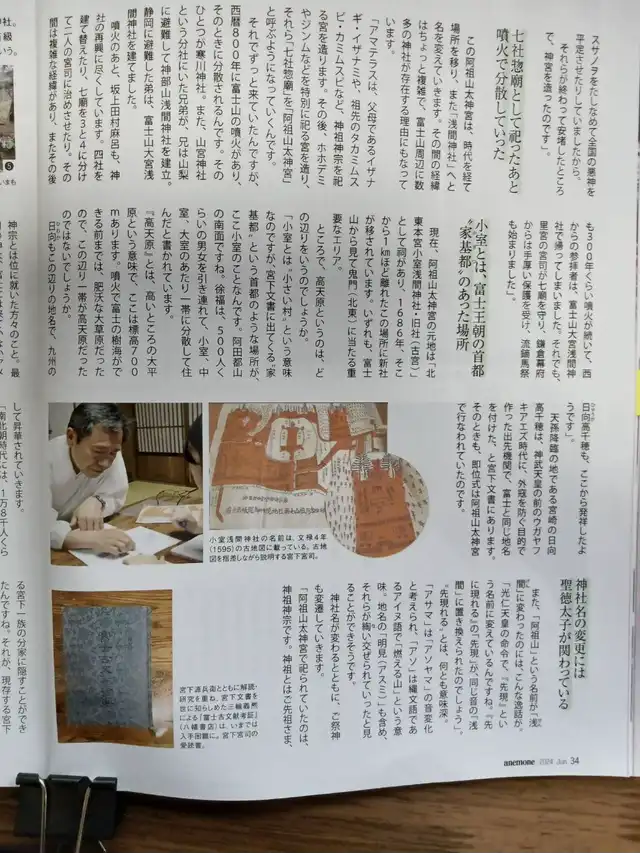 スサノヲをたしなめて全国の悪神を
平定させたりしていましたから。
それらが終わって安堵したところ
で、神宮を造ったのです」。
七社惣廟として祀ったあと
噴火で分散していった
この阿祖山太神宮は、時代を経て
場所を移り、また「浅間神社」へと
名を変えていきます。その間の経緯
はちょっと複雑で、富士山周辺に数
多の神社が存在する理由にもなって
います。
「アマテラスは、父母であるイザナ
ギ・イザナミや、祖先のタカミムス
ビ・カミムスビなど、神祖神宗を祀
る宮を造ります。その後、ホホデミ
やジンムなどを特別に祀る宮を造り、
それら「七社惣廟」を「阿祖山太神宮」
と呼ぶようになっていくんです。
それでずっと来ていたんですが、
西暦800年に富士山の噴火があり、
そのときに分散されるんです。その
ひとつが寒川神社。また、山宮神社
という分社にいた兄弟が、兄は山梨
に避難して神部山浅間神社を建立。
静岡に避難した弟は、富士山大宮浅
間神社を建てました。
噴火のあと、坂上田村麻呂も、神
社の再興に尽くしています。四社を
建て替えたり、七廟を3と4に分け
て二人の宮司に治めさせたり。その
間は複雑な経緯があり、またその後
も300年くらい噴火が続いて、西
からの参拝者は、富士山大宮浅間神
社で帰ってしまいました。それでも、
里宮の宮司が七廟を守り、鎌倉幕府
からは手厚い保護を受け、流鏑馬祭
も始まりました」。
小室とは、富士王朝の首都
〝家基都〟のあった場所
現在、阿祖山太神宮の元地は「北
東本宮小室浅間神社・旧社(古宮)」
として祠があり、1686年、そこ
から1㎞ほど離れたこの場所に新社
が移されています。いずれも、富士
山から見て鬼門(北東)に当たる重
要なエリア。
ところで、高天原というのは、ど
の辺りをいうのでしょうか。
「小室とは〝小さい村〟という意味
なのですが、宮下文書に出てくる〝家
基都〟という首都のような場所が、
ここ小室のことなんです。阿田都山
の南面ですね。徐福は、500人く
らいの男女を引き連れて、小室、中
室、大室のあたり一帯に分散して住
んだと書かれています。
『高天原』とは、高いところの大平
原という意味で、ここは標高700
mあります。噴火で富士の樹海がで
きる前までは、肥沃な大草原だった
ので、この辺り一帯が高天原だった
のではないでしょうか。
日向もこの辺りの地名で、九州の
日向高千穂も、ここから発祥したよ
うです」。
天孫降臨の地である宮崎の日向
高千穂は、神武天皇の前のウガヤフ
キアエズ時代に、外寇を防ぐ目的で
作った出先機関で、富士と同じ地名
を付けた、と宮下文書にあります。
そのときも、即位式は阿祖山太神宮
で行なわれていたのです。
小室浅間神社の名前は、文禄4年
(1595)の古地図に載っている。古地
図を指差しながら説明する宮下宮司。
神社名の変更には
聖徳太子が関わっている
また、「阿祖山」という名前が「浅
間」に変わったのには、こんな逸話が。
「光仁天皇の命令で、『先現』とい
う名前に変えているんですね。『先
に現れる』の『先現』が、同じ音の『浅
間』に置き換えられたのでしょう」。
〝先現れる〟とは、何とも意味深。
「アサマ」は「アソヤマ」の音変化
と考えられ、「アソ」は縄文語であ
るアイヌ語で「燃える山」という意
味。地名の「明見(アスミ)」も含め、
それらが綯い交ぜられていったと見
ることができそうです。
神社名が変わるとともに、ご祭神
も変遷していきます。
「阿祖山太神宮で祀られていたのは、
神祖神宗です。神祖とはご先祖さま、
宮下源兵衛とともに解読・
研究を重ね、宮下文書を
世に知らしめた三輪義熈
による『富士古文献考証』
(八幡書店)は、いまでは
入手困難に。宮下宮司の
愛読書。
anemone 2024 Jun 34
神宗とは位に就いた方々のこと。最
して昇華されていきます。
「南北朝時代には、1万8千人くら
る宮下一族の分家に隠すことができ
たんですね。それが、現存する宮下